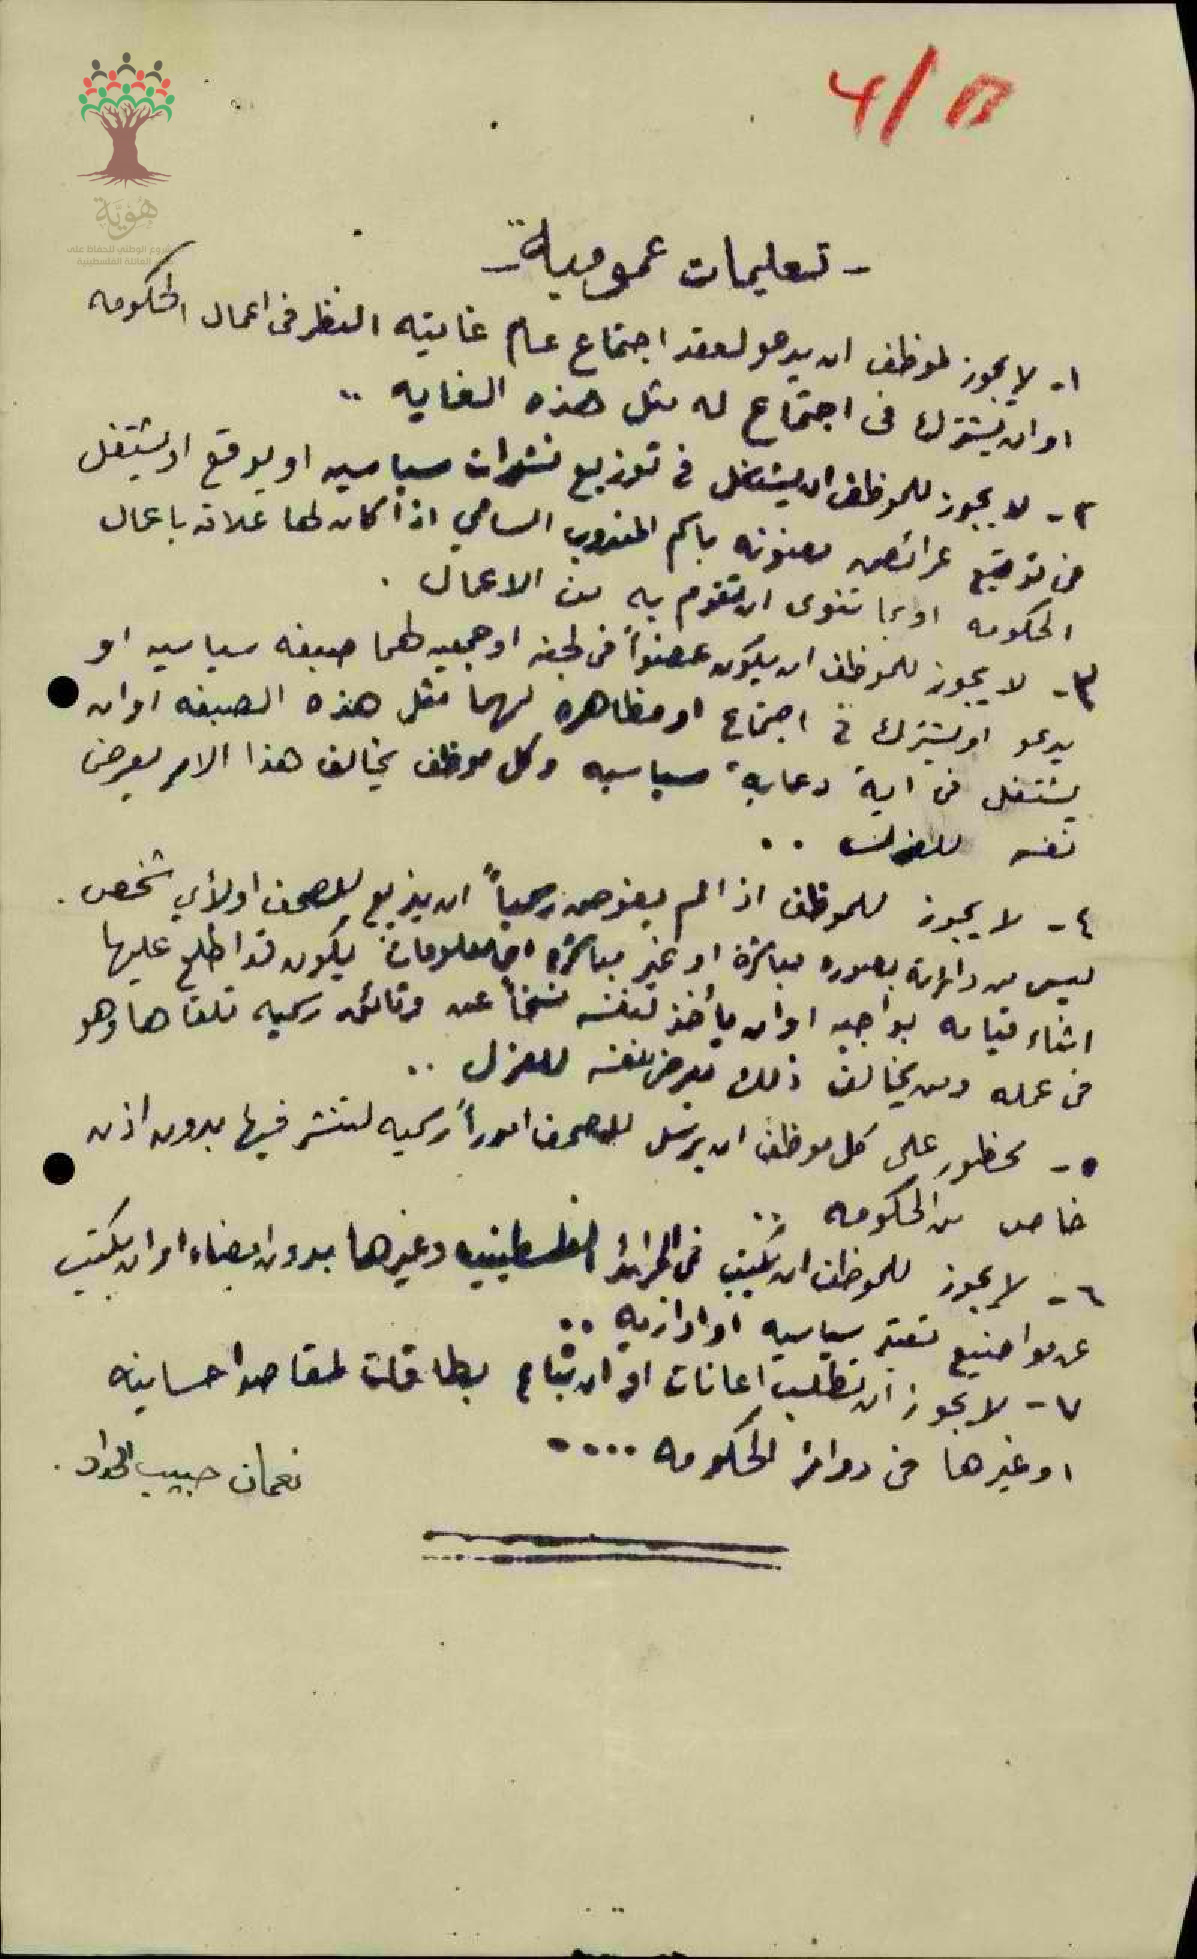 4/B
هُوِيَّة
المشروع الوطني للحفاظ على
العائلة الفلسطينية
- تعليمات عمومية -
١- لا يجوز لموظف ان يدعو لعقد اجتماع عام غايته النظر فى اعمال الحكومه
او ان يشترك فى اجتماع له مثل هذه الغايه ..
٢- لا يجوز للموظف ان يشتغل فى توزيع نشرات سياسيه او يوقع او يشتغل
فى توقيع عرائض معنونه باسم المندوب السامي اذا كان لها علاقه باعمال
الحكومه او بما تنوى ان تقوم به من الاعمال .
٣- لا يجوز للموظف ان يكون عضواً فى لجنه او جمعيه لهما صبغه سياسيه او
يدعو او يشترك فى اجتماع او مظاهره لهما مثل هذه الصبغه او ان
يشتغل فى اية دعاية سياسيه وكل موظف يخالف هذا الامر يعرض
نفسه للعزل ..
٤- لا يجوز للموظف اذا لم يفوض رسمياً ان يذيع للصحف او لأي شخص .
ليس من دائرته بصوره مباشرة او غير مباشره اى معلومات يكون قد اطلع عليها
اثناء قيامه بواجبه او ان يأخذ لنفسه نسخاً عن وثائق رسميه تلقاها وهو
فى عمله ومن يخالف ذلك يعرض نفسه للعزل ..
٥- محظور على كل موظف ان يرسل للصحف اموراً رسميه لتنشر فيها بدون اذن
خاص من الحكومه ..
٦- لا يجوز للموظف ان يكتب فى الجرائد الفلسطينيه وغيرها بدون امضاء او ان يكتب
عن مواضيع تعتبر سياسيه او اداريه ..
٧- لا يجوز ان تطلب اعانات او ان تباع بطاقات لمقاصد احسانيه
او غيرها فى دوائر الحكومه ....
نعمان حبيب الخوري .